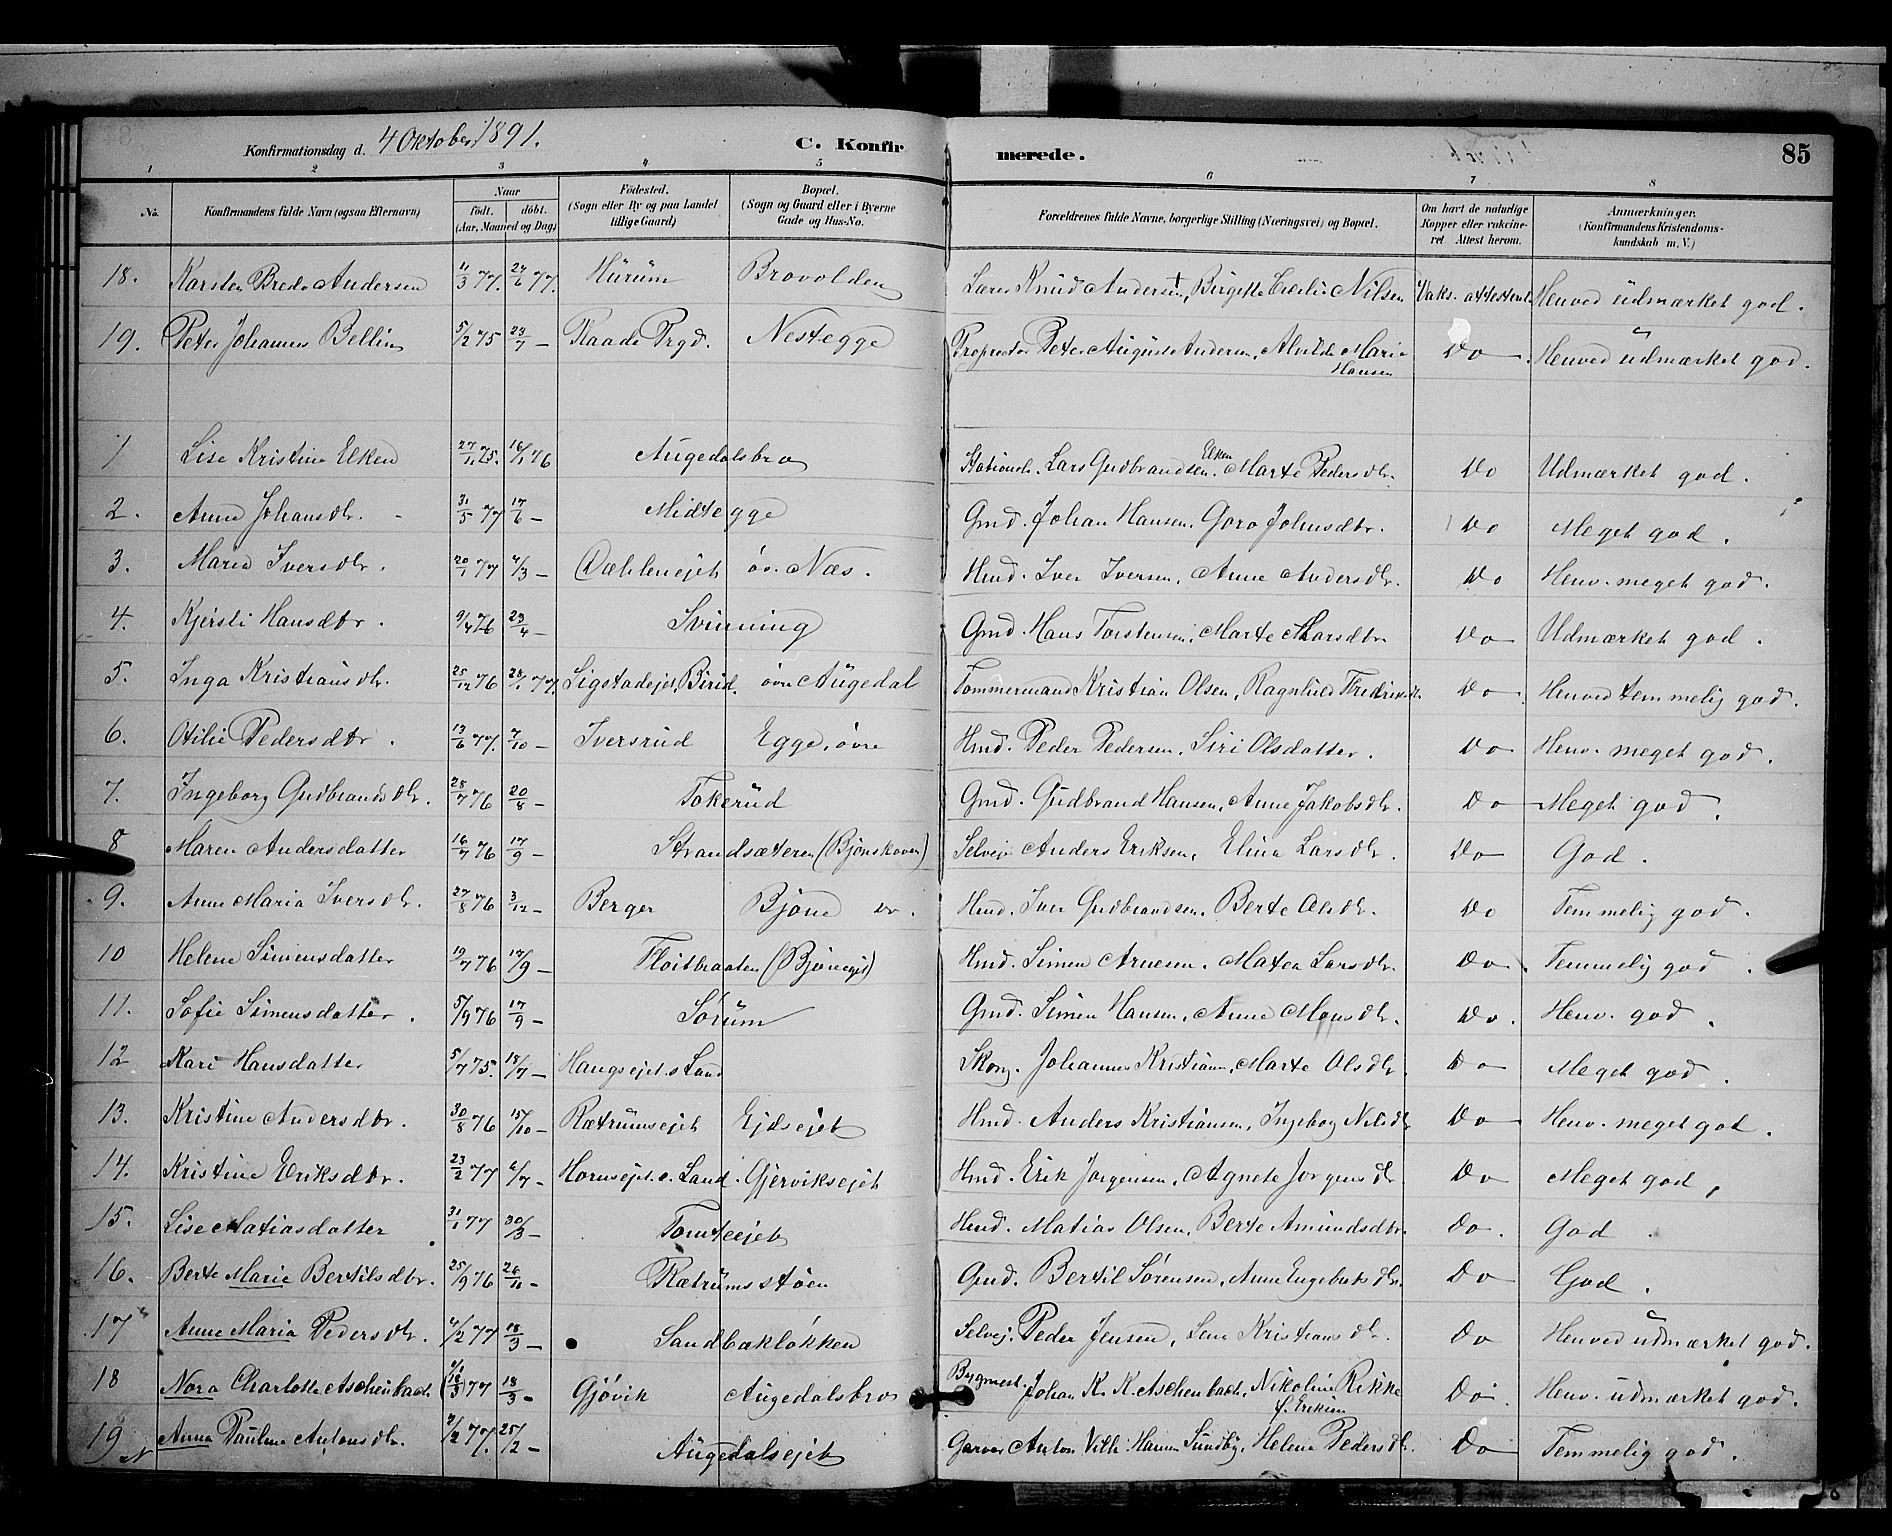 Konfirmationsdag d. 4 Oktober 1891. C. Konfirmerede. 85
1 2 3 4 5 6 7 8
No. Konfirmandens fulde Navn (ogsaa Efternavn) Naar födt. döbt. (Aar, Maaned og Dag) Födested. (Sogn eller By og paa Landet tillige Gaard) Bopæl. (Sogn og Gaard eller i Byerne Gade og Hus-No. Forældrenes fulde Navne, borgerlige Stilling (Næringsvei) og Bopæl. Om havt de naturlige Kopper eller vakcineret Attest herom. Anmærkninger. (Konfirmandens Kristendomskundskab m. V.)
18. Karsten Brede Andersen 11/3 77. 24/6 77. Hurum Brovolden Lærer Knud Andersen +, Birgitte Cecilie Nilsen Vaks. attesteret Henved udmærket god.
19. Peter Johannes Bellin 5/2 75 23/7 — Raade Prgd. Nestegge Proprietær Peter August Andersen, Alvilde Marie Hansen Do Henved udmærket god.
1 Lise Kristine Elken 27/11 75. 16/1 76 Augedalsbro Stationsk. Lars Gudbrandsen Elken. Marte Pedersdtr. Do Udmærket god.
2. Anne Johansdtr. 31/5 77 17/6 — Midtegge Gmd. Johan Hansen, Goro Johnsdtr. Do Meget god.
3. Maria Iversdtr. 20/1 77 4/3 — Dæhlenejet öv. Næs. Hmd. Iver Iversen, Anne Andersdtr. Do Henv. meget god.
4. Kjersti Hansdtr. 9/4 76 23/4 — Svinning Gmd. Hans Torstensen, Marte Larsdtr Do Udmærket god.
5. Inga Kristiansdtr. 25/12 76 28/1 77. Sigstadejet, Birid. övre Augedal Tømmermand Kristian Olsen, Ragnhild Fredriksdtr. Do Henved temmelig god.
6. Otilie Pedersdtr. 13/6 77. 7/10 — Iversrud Egge, övre Hmd. Peder Pedersen, Siri Olsdatter. Do Henv. meget god.
7. Ingeborg Gudbrandsdtr. 28/7 76 20/8 — Tokerud Gmd. Gudbrand Hansen, Anne Jakobsdtr. Do Meget god.
8 Maren Andersdatter 16/7 76 17/9 — Strandsæteren (Bjönskoven) Selvejer Anders Eriksen, Elina Larsdtr. Do God.
9. Anne Maria Iversdtr. 27/8 76 3/12 — Berger Bjöne Hmd. Iver Gudbrandsen. Berte Olsdtr. Do Temmelig god.
10 Helene Simensdatter 19/7 76 17/9 — Flöitbraaten (Bjöneejet) Hmd. Simen Arnesen. Matea Larsdtr. Do Temmelig god.
11. Sofie Simensdatter. 5/9 76 17/9 — Sörum Gmd. Simen Hansen, Anne Monsdtr. Do. Henv. god.
12 Kari Hansdatter 5/7 75. 18/7 — Haugsejet s. Land Skom. Johannes Kristiansen, Marte Olsdtr. Do Meget god.
13. Kristine Andersdtr. 30/8 76 15/10 — Rætrumsejet Ejdsejet Hmd. Anders Kristiansen, Ingeborg Nilsdtr Do Henv. meget god.
14. Kristine Eriksdtr. 23/2 77 6/7 — Hornsejet s. Land. Gjerviksejet Hmd. Erik Jörgensen, Agnete Jörgensdtr Do Meget god.
15. Lise Matiasdatter 31/1 77 30/3 — Tomteejet Hmd. Matias Olsen, Berte Amundsdtr. Do. God.
16. Berte Marie Bertilsdtr. 25/9 76 26/11 — Rætrumsstöen Gmd. Bertil Sörensen, Anne Engebretsdtr. Do God.
17 Anne Maria Pedersdtr. 4/2 77 18/3 — Sandbakløkken Selvej. Peder Jensen, Lena Kristiansdtr. Do Henved udmærket god.
18 Nora Charlotte Aschenbach 77 18/3 — Gjövik Augedalsbro Bygmest. Johan K. K. Aschenbach, Nikoline Rikke f. Eriksen Do Henv. udmærket god.
19 Anna Pauline Antonsdtr. 2/2 77. 25/2 — Augedalsejet Garver Anton Vilh. Hansen Sundby, Helene Pedersdtr. Do Temmelig god.